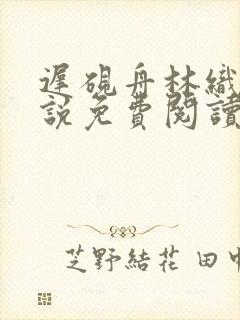 遲硯舟林織
說免費閱讀
芝野結花 田中